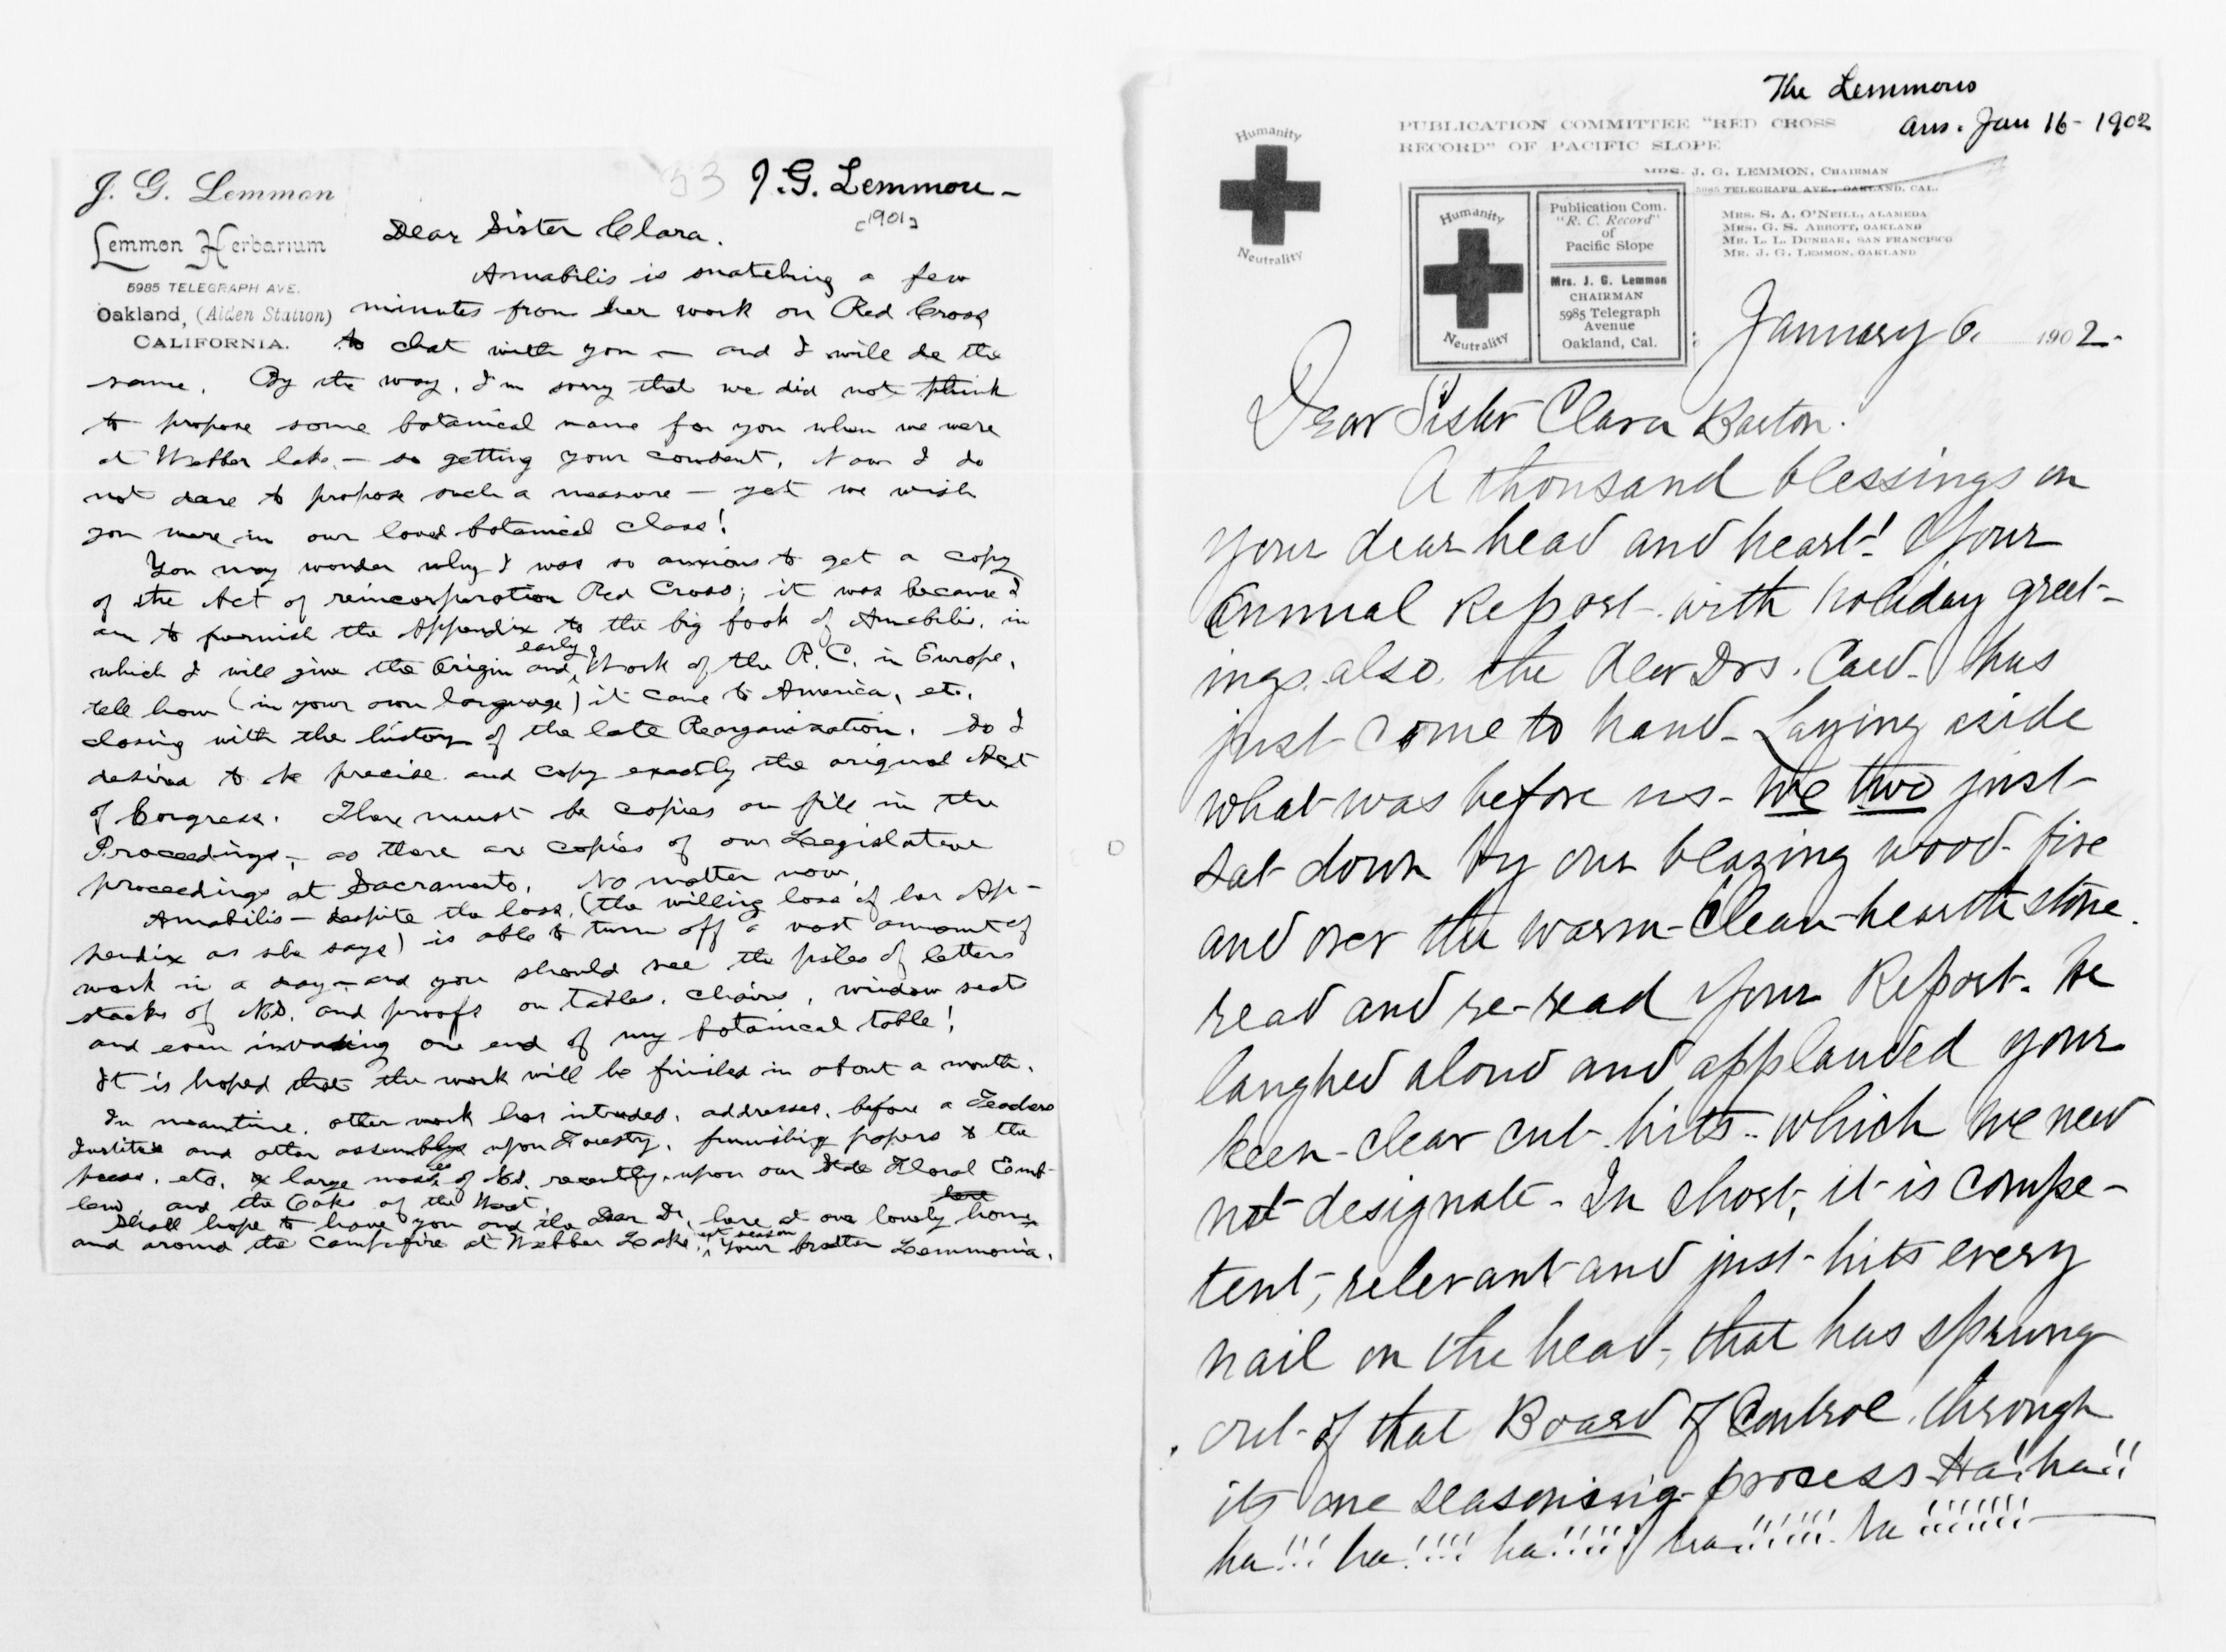 J. G. Lemmon
Lemmon Herbarium
5985 TELEGRAPH AVE.
Oakland, (Alden Station)
CALIFORNIA.
53
J. G. Lemmon —
[1901]
Dear Sister Clara.
Amabilis is snatching a few
minutes from her work on Red Cross
to chat with you — and I will do the
same. By the way, I'm sorry that we did not think
to propose some botanical name for you when we were
at Webber lake, — so getting your consent. Now I do
not dare to propose such a measure — yet we wish
you were in our loved botanical class!
You may wonder why I was so anxious to get a copy
of the Act of reincorporation Red Cross; it was because I
am to furnish the Appendix to the big book of Amabilis, in
which I will give the Origin and early Work of the R. C. in Europe,
tell how (in your own language) it came to America, etc.
closing with the history of the late Reorganization. So I
desired to be precise and copy exactly the original Act
of Congress. There must be copies on file in the
Proceedings, as there are copies of our Legislative
proceedings at Sacramento. No matter now.
Amabilis — despite the loss, (the willing loss of her Ap-
pendix as she says) is able to turn off a vast amount of
work in a day — and you should see the piles of letters
stacks of MS. and proofs on tables, chairs, window seats
and even invading one end of my botanical table!
It is hoped that the work will be finished in about a month.
In meantime, other work has intruded, addresses, before a Teachers
Institute and other assemblys upon Forestry, furnishing papers to the
press, etc. & large masses of MS. recently, upon our State Floral Emb-
lem, and the Oaks of the West.
Shall hope to have you and the dear Dr. here at our lovely home
and around the Campfire at Webber Lake, next season Your brother Lemmonia.
The Lemmons
ans. Jan 16 - 1902
Humanity
Neutrality
PUBLICATION COMMITTEE "RED CROSS
RECORD" OF PACIFIC SLOPE
MRS. J. G. LEMMON, CHAIRMAN
5985 TELEGRAPH AVE., OAKLAND, CAL.
MRS. S. A. O'NEILL, ALAMEDA
MRS. G. S. ABBOTT, OAKLAND
MR. L. L. DUNBAR, SAN FRANCISCO
MR. J. G. LEMMON, OAKLAND
Humanity
Neutrality
Publication Com.
"R. C. Record"
of
Pacific Slope
Mrs. J. G. Lemmon
CHAIRMAN
5985 Telegraph
Avenue
Oakland, Cal.
January 6. 1902.
Dear Sister Clara Barton.
A thousand blessings on
your dear head and heart! Your
Annual Report with holiday greet-
ings, also, the dear Drs. Card - has
just come to hand - Laying aside
what was before us - we two just
sat down by our blazing wood-fire
and over the warm-clean-hearth stone
read and re-read your Report. We
laughed aloud and applauded your
keen-clear cut hits - which we need
not designate - In short, it is compe-
tent, relevant and just-hits every
nail on the head, that has sprung
out of that Board of Control, through
its one seasoning process Ha! ha!!
ha!!! ha!!!! ha!!!!! ha!!!!!! ha!!!!!!!